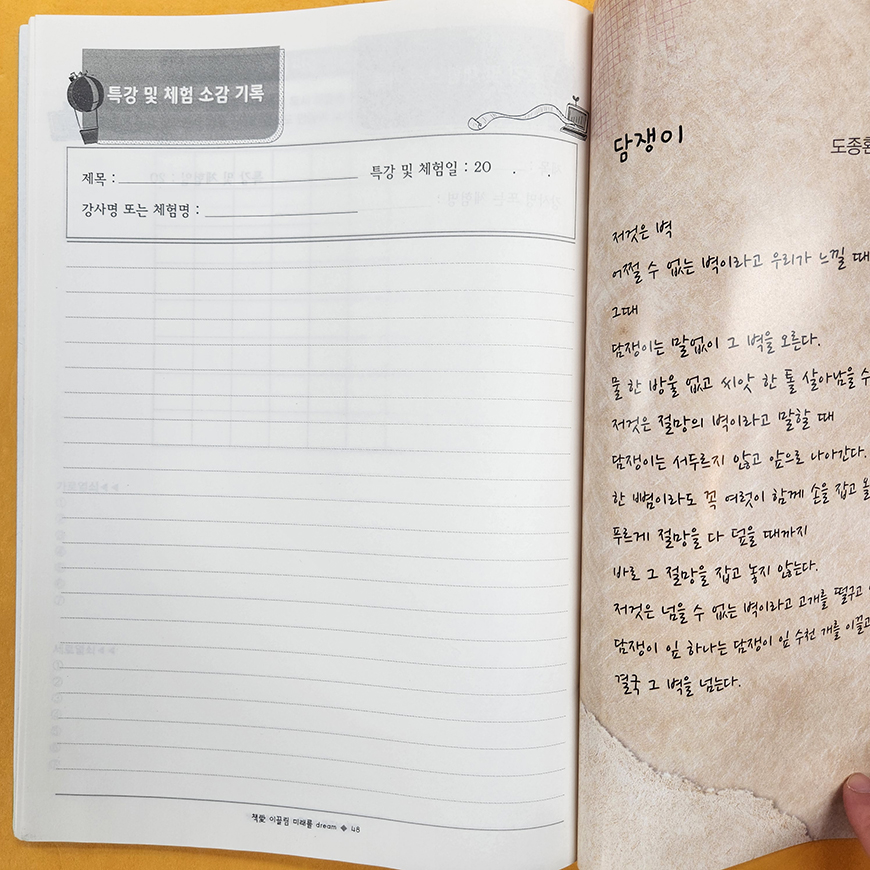 특강 및 체험 소감 기록
제목 :
특강 및 체험일 : 20 . .
강사명 또는 체험명 :
책愛 이끌림 미래를 dream ◆ 48
담쟁이
도종환
저것은 벽
어쩔 수 없는 벽이라고 우리가 느낄 때
그때
담쟁이는 말없이 그 벽을 오른다.
물 한 방울 없고 씨앗 한 톨 살아남을 수
저것은 절망의 벽이라고 말할 때
담쟁이는 서두르지 않고 앞으로 나아간다.
한 뼘이라도 꼭 여럿이 함께 손을 잡고
푸르게 절망을 다 덮을 때까지
바로 그 절망을 잡고 놓지 않는다.
저것은 넘을 수 없는 벽이라고 고개를 떨구고
담쟁이 잎 하나는 담쟁이 잎 수천 개를 이끌고
결국 그 벽을 넘는다.